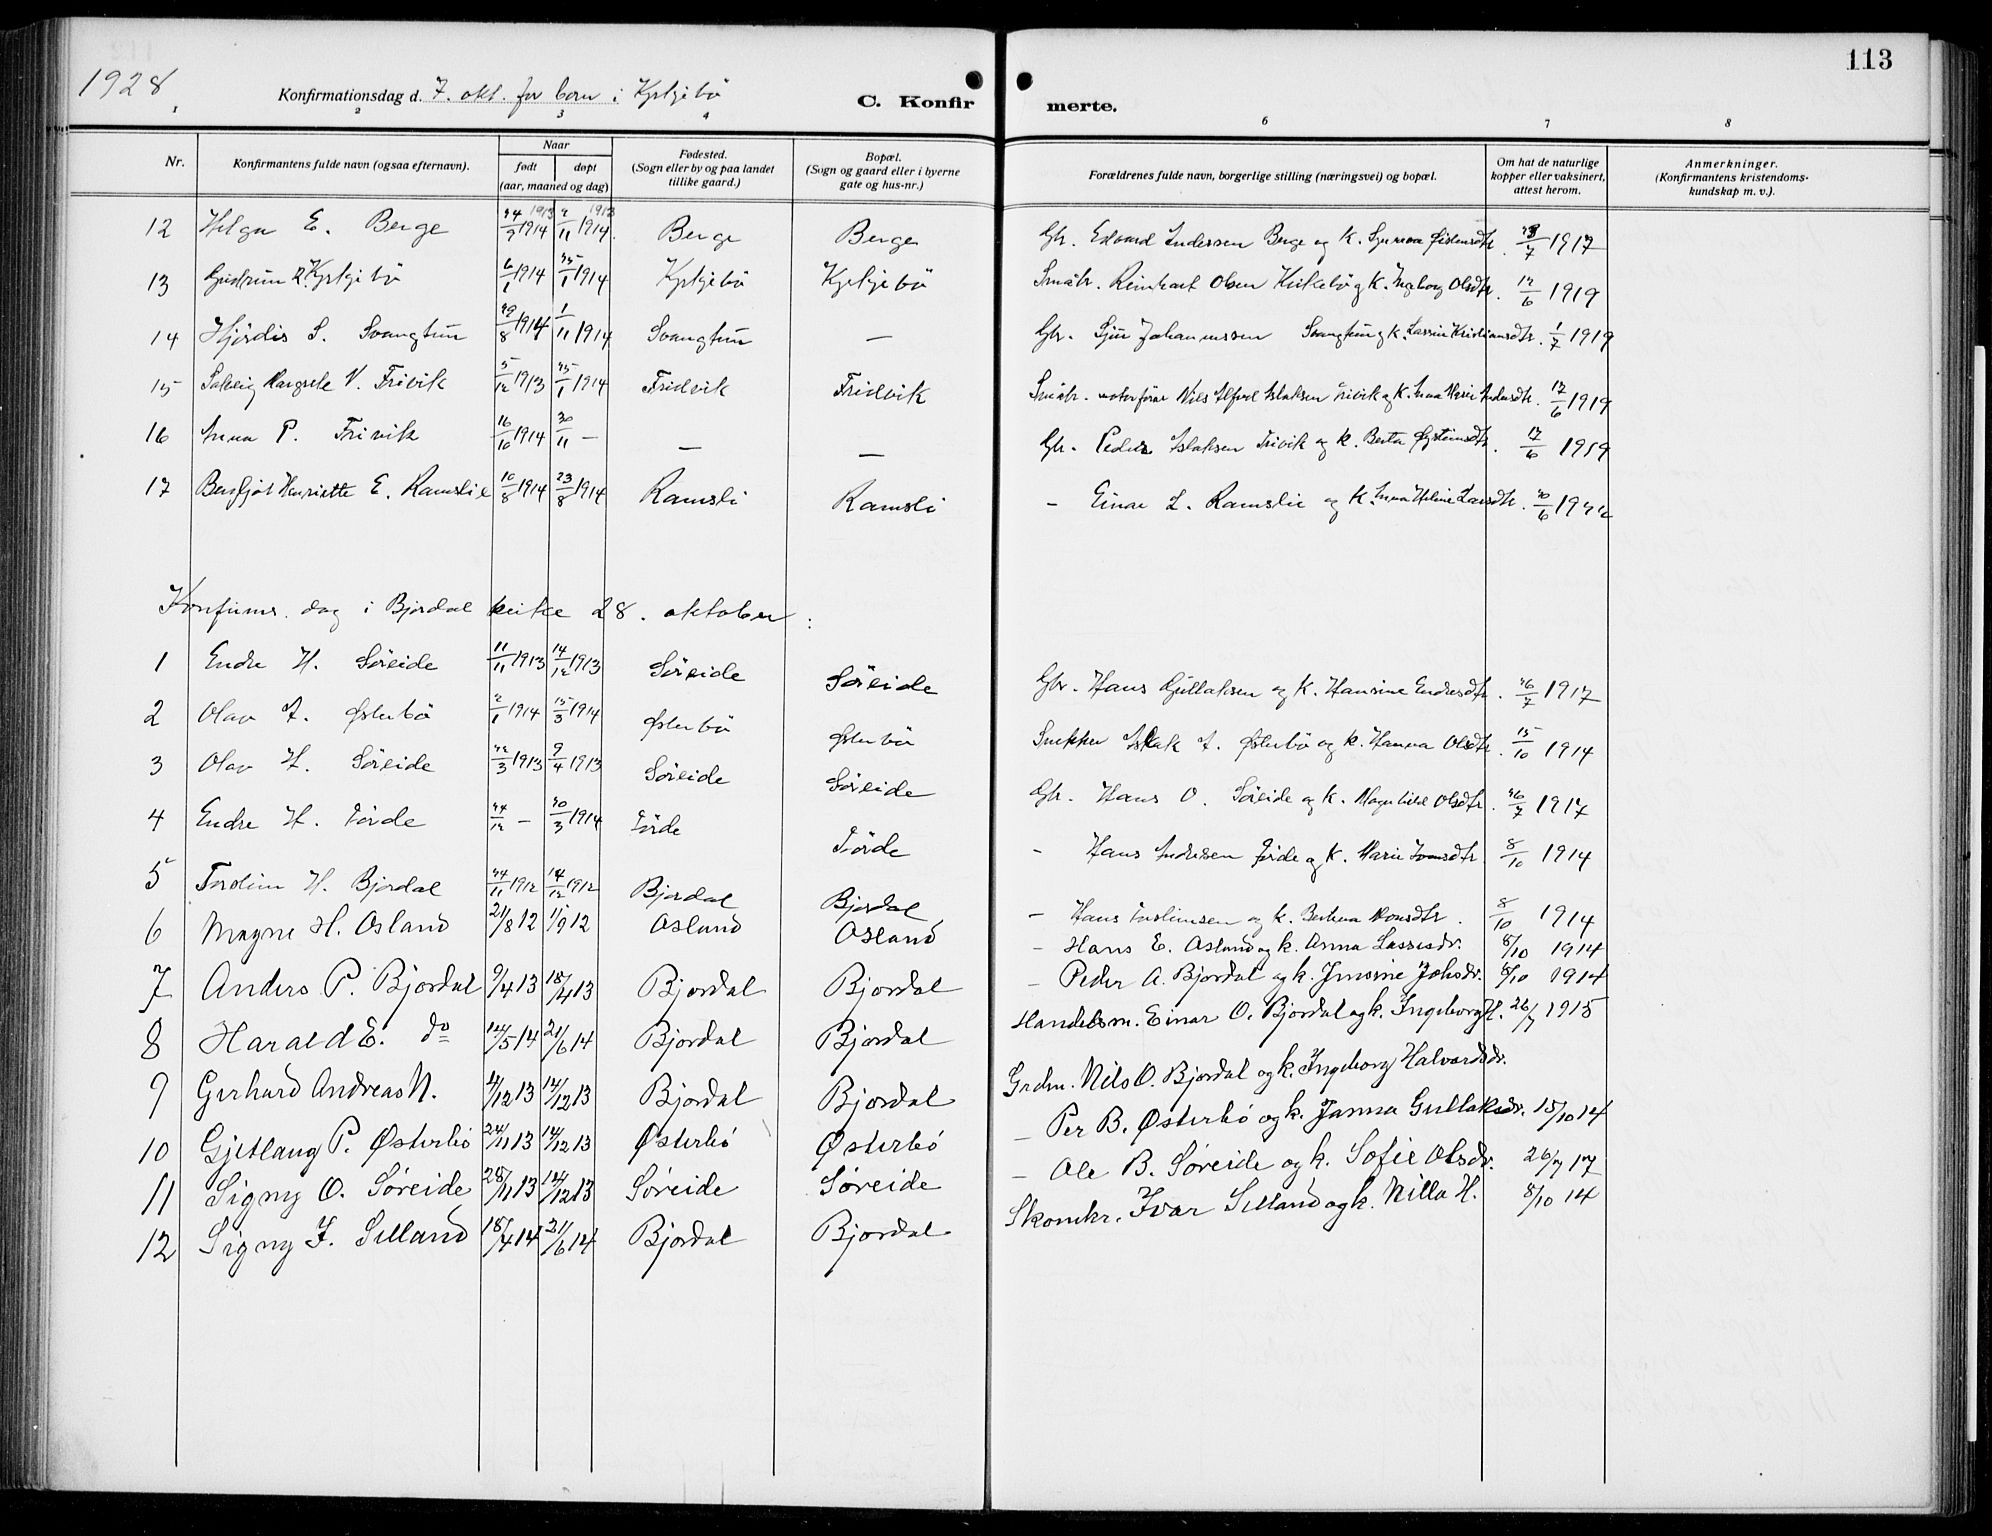 113
1928
Konfirmationsdag d. 7. okt. for born i Kyrkjebö
C. Konfirmerte.
1 2 3 4 6 7 8
Nr. Konfirmantens fulde navn (ogsaa efternavn). Naar født døpt (aar, maaned og dag) Fødested. (Sogn eller by og paa landet tillike gaard.) Bopæl. (Sogn og gaard eller i byerne gate og hus-nr.) Forældrenes fulde navn, borgerlige stilling (næringsvei) og bopæl. Om hat de naturlige kopper eller vaksinert, attest herom. Anmerkninger. (Konfirmantens kristendomskundskap m. v.).
12 Helga E. Berge 1914 1914 Berge Berge Gbr. Edvard Andersen Berge og k. 1917
13 Gudrun R. Kyrkjebö 6/1 1914 25/1 1914 Kyrkjebö Kyrkjebö Småbr. Reinhart Olsen Kirkebö og k. Ingborg Olsdtr. 12/6 1919
14 Hjördis S. Svangtun 29/8 1914 1/11 1914 Svangtun — Gbr. Sjur Johannessen Svangtun og k. Kristiansdtr. 1/7 1919
15 Solveig Margrete N. Trivik 5/12 1913 25/1 1914 Fridvik Fridvik Småbr. Nils Alfred Islaksen Trivik og k. Anna Marie Andersdtr. 12/6 1919
16 Anna P. Trivik 16/10 1914 30/11 — — — Gbr. Peder Islaksen Trivik og k. Berta Øysteinsdtr. 12/6 1919
17 Bergljot Henriette E. Ramslie 10/8 1914 23/8 1914 Ramsli Ramsli — Einar L. Ramslie og k. Anna Heline Larsdtr. 20/6
Konfirms. dag i Bjordal kirke 28. oktober:
1 Endre H. Söreide 11/11 1913 14/12 1913 Söreide Söreide Gbr. Hans Gullaksen og k. Hansine Endresdtr. 26/7 1917
2 Olav I. Østerbö 2/1 1914 15/3 1914 Østerbö Østerbö Snekker Islak I. Østerbö og k. Hanna Olsdtr. 15/10 1914
3 Olav H. Söreide 22/3 1913 9/4 1913 Söreide Söreide Gbr. Hans O. Söreide og k. Magnhild Olsdtr. 26/7 1917
4 Endre H. Förde 24/12 — 20/3 1914 Förde Förde — Hans Andersen Förde og k. Marie Ivarsdtr. 8/10 1914
5 Torleiv H. Bjordal 24/11 1912 14/12 1912 Bjordal Bjordal — Hans og k. Berthea Monsdtr. 8/10 1914
6 Magne H. Osland 21/8 12 1/9 12 Osland Osland — Hans E. Osland og k. Anna Lassesdr. 8/10 1914
7 Anders P. Bjordal 9/4 13 18/4 13 Bjordal Bjordal — Peder A. Bjordal og k. Jensine Johsdr. 8/10 1914
8 Harald E. do 12/5 14 21/6 14 Bjordal Bjordal Handelsm. Einar O. Bjordal og k. Ingeborg H. 26/7 1915
9 Gerhard Andreas N. 4/12 13 14/12 13 Bjordal Bjordal Grdm. Nils O. Bjordal og k. Ingeborg Halvardsdr.
10 Gjetlaug P. Østerbö 24/11 13 14/12 13 Østerbö Østerbö — Per B. Østerbö og k. Janna Gullaksdr. 15/10 14
11 Signy O. Söreide 28/11 13 14/12 13 Söreide Söreide — Ole B. Söreide og k. Sofie Olsdr. 26/7 17
12 Signy I. Selland 18/4 14 21/6 14 Bjordal Bjordal Skomkr. Ivar Selland og k. Nilla H. 8/10 14